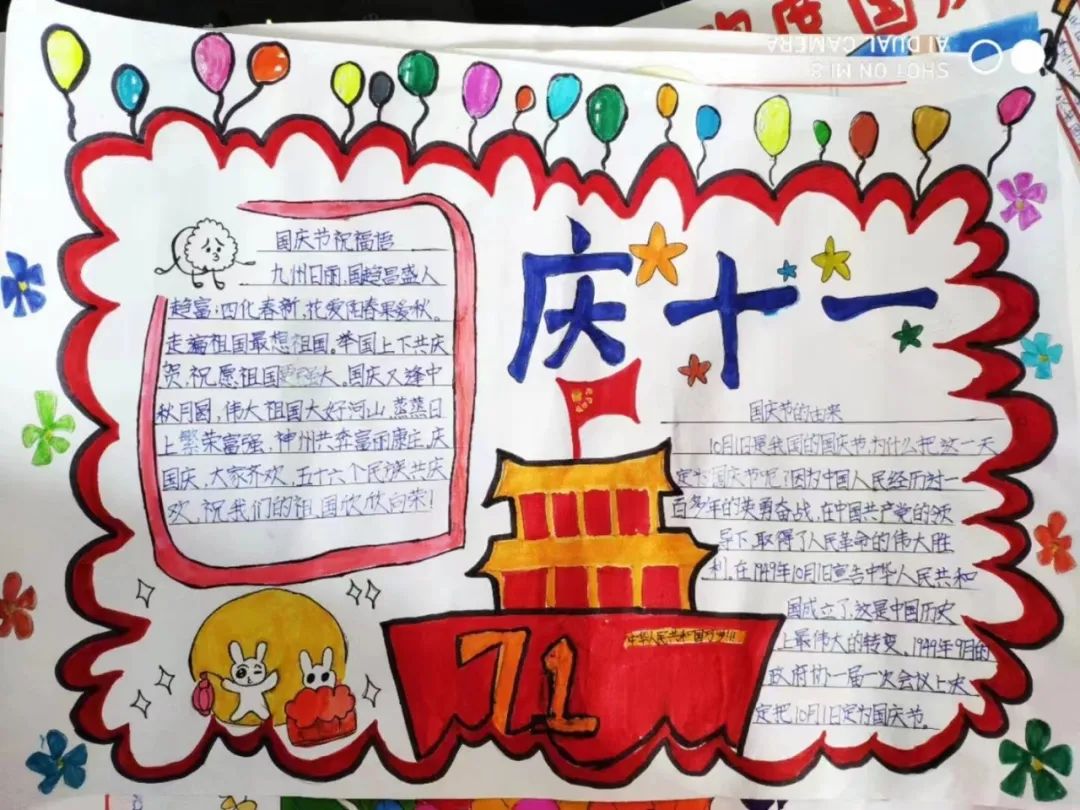 欢度国庆
SHOT ON MI 8
AI DUAL CAMERA
庆十一
国庆节祝福语
九州日丽,国趋昌盛人
趋富;四化春新,花爱阳春果爱秋。
走遍祖国最想祖国。举国上下共庆
贺,祝愿祖国更强大。国庆又逢中
秋月圆,伟大祖国大好河山,蒸蒸日
上繁荣富强,神州共奔富丽康庄,庆
国庆,大家齐欢,五十六个民族共庆
欢,祝我们的祖国欣欣向荣!
国庆节的由来
10月1日是我国的国庆节,为什么把这一天
定为国庆节呢?因为中国人民经历过一
百多年的英勇奋战,在中国共产党的领
导下,取得了人民革命的伟大胜
利,在1949年10月1日宣告中华人民共和
国成立了,这是中国历史
上最伟大的转变,1949年9月的
政府协一届一次会议上决
定把10月1日定为国庆节。
中华人民共和国万岁!!!
71